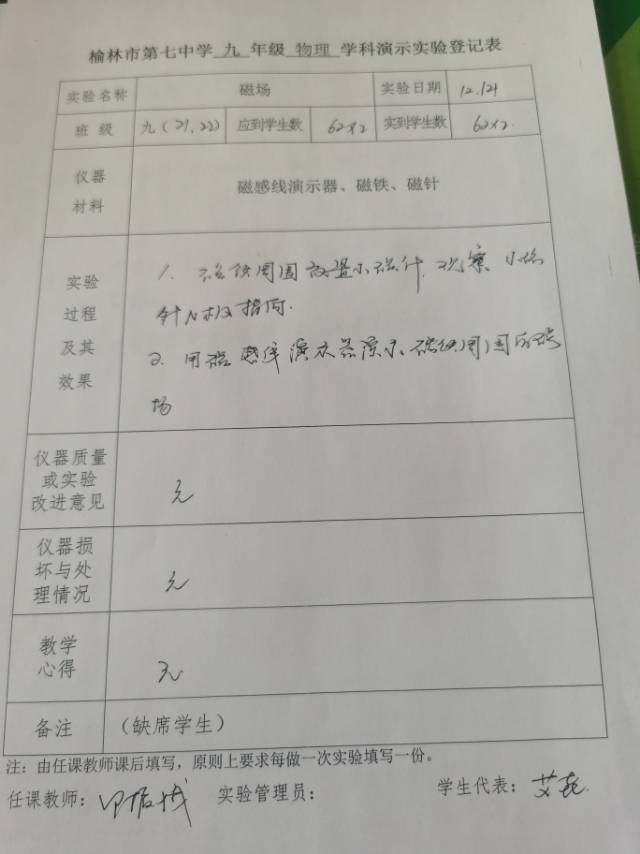 榆林市第七中学 九 年级 物理 学科演示实验登记表
实验名称 磁场 实验日期 12.121
班 级 九(21,22) 应到学生数 62×2 实到学生数 62×2.
仪器
材料
磁感线演示器、磁铁、磁针
实验
过程
及其
效果
1. 磁铁周围放置小磁针.观察小磁
针N极指向.
2. 用磁感线演示器演示磁铁周围的磁
场
仪器质量
或实验
改进意见
无
仪器损
坏与处
理情况
无
教学
心得
无
备注 (缺席学生)
注:由任课教师课后填写,原则上要求每做一次实验填写一份。
任课教师: 实验管理员: 学生代表:艾